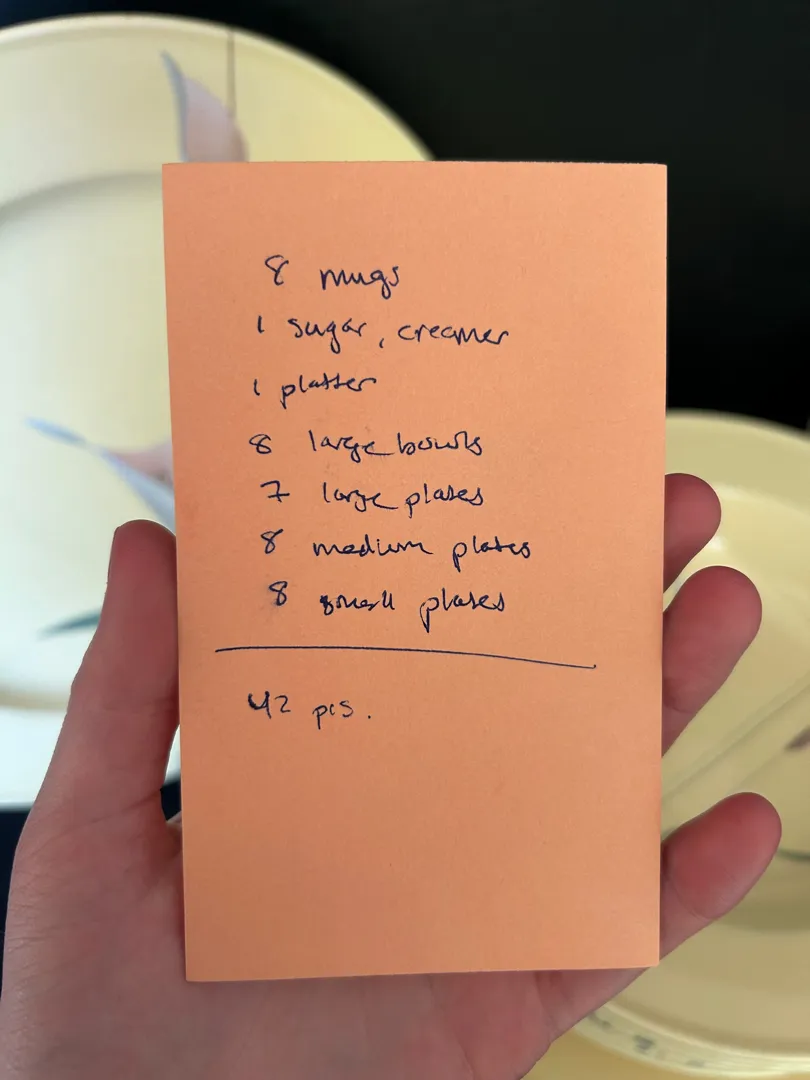 8 mugs
1 sugar, creamer
1 platter
8 large bowls
7 large plates
8 medium plates
8 small plates
42 pcs.